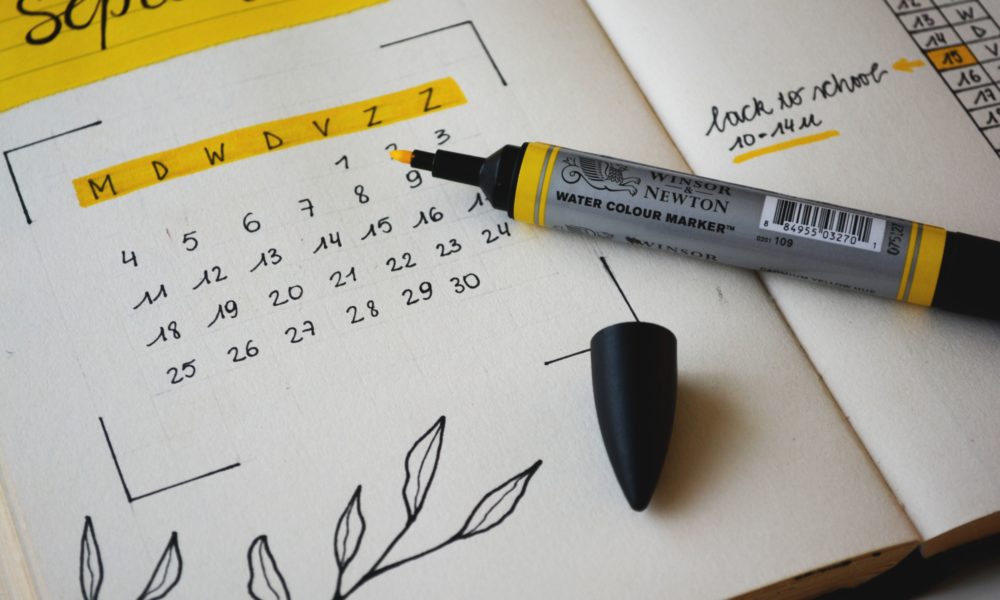 M D W D V Z Z
1 2 3
4 5 6 7 8 9
11 12 13 14 15 16
18 19 20 21 22 23 24
25 26 27 28 29 30
12
13 W
14 D
15 V
16
17
back to school
10-14u
WINSOR
&
NEWTON
WATER COLOUR MARKER™
8 84955 03270 1
0201 109
WINSOR